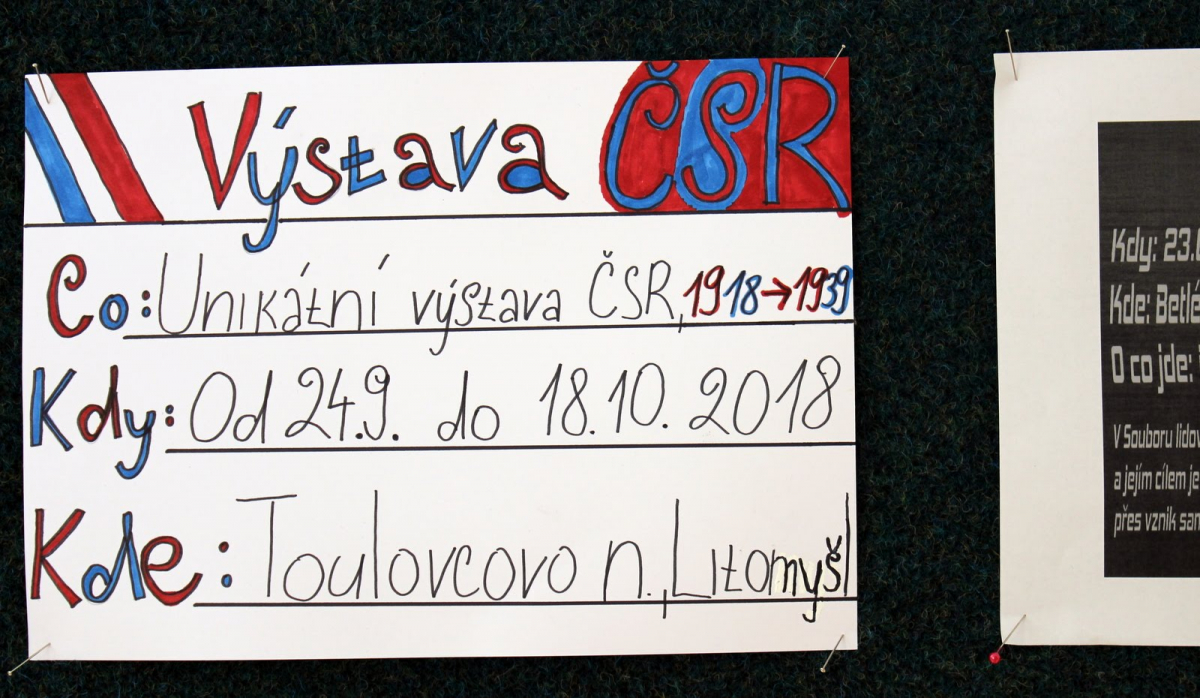 Výstava ČSR
Co: Unikátní výstava ČSR, 1918→1939
Kdy: Od 24.9. do 18.10. 2018
Kde: Toulovcovo n., Litomyšl
Kdy: 23.
Kde:
O co jde:
V Souboru
a jejím cílem je
přes vznik